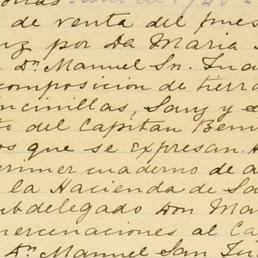 de venta del
por Da Maria
Dn. Manuel Sn. Jua
composicion de tierra
ncinillas, Sauz y e
to del Capitan Ben
os que se expresan.
rimer cuaderno de a
la Hacienda de Sa
ubdelegado Don Ma
mercenaciones al Ca
Dn. Manuel San Jua